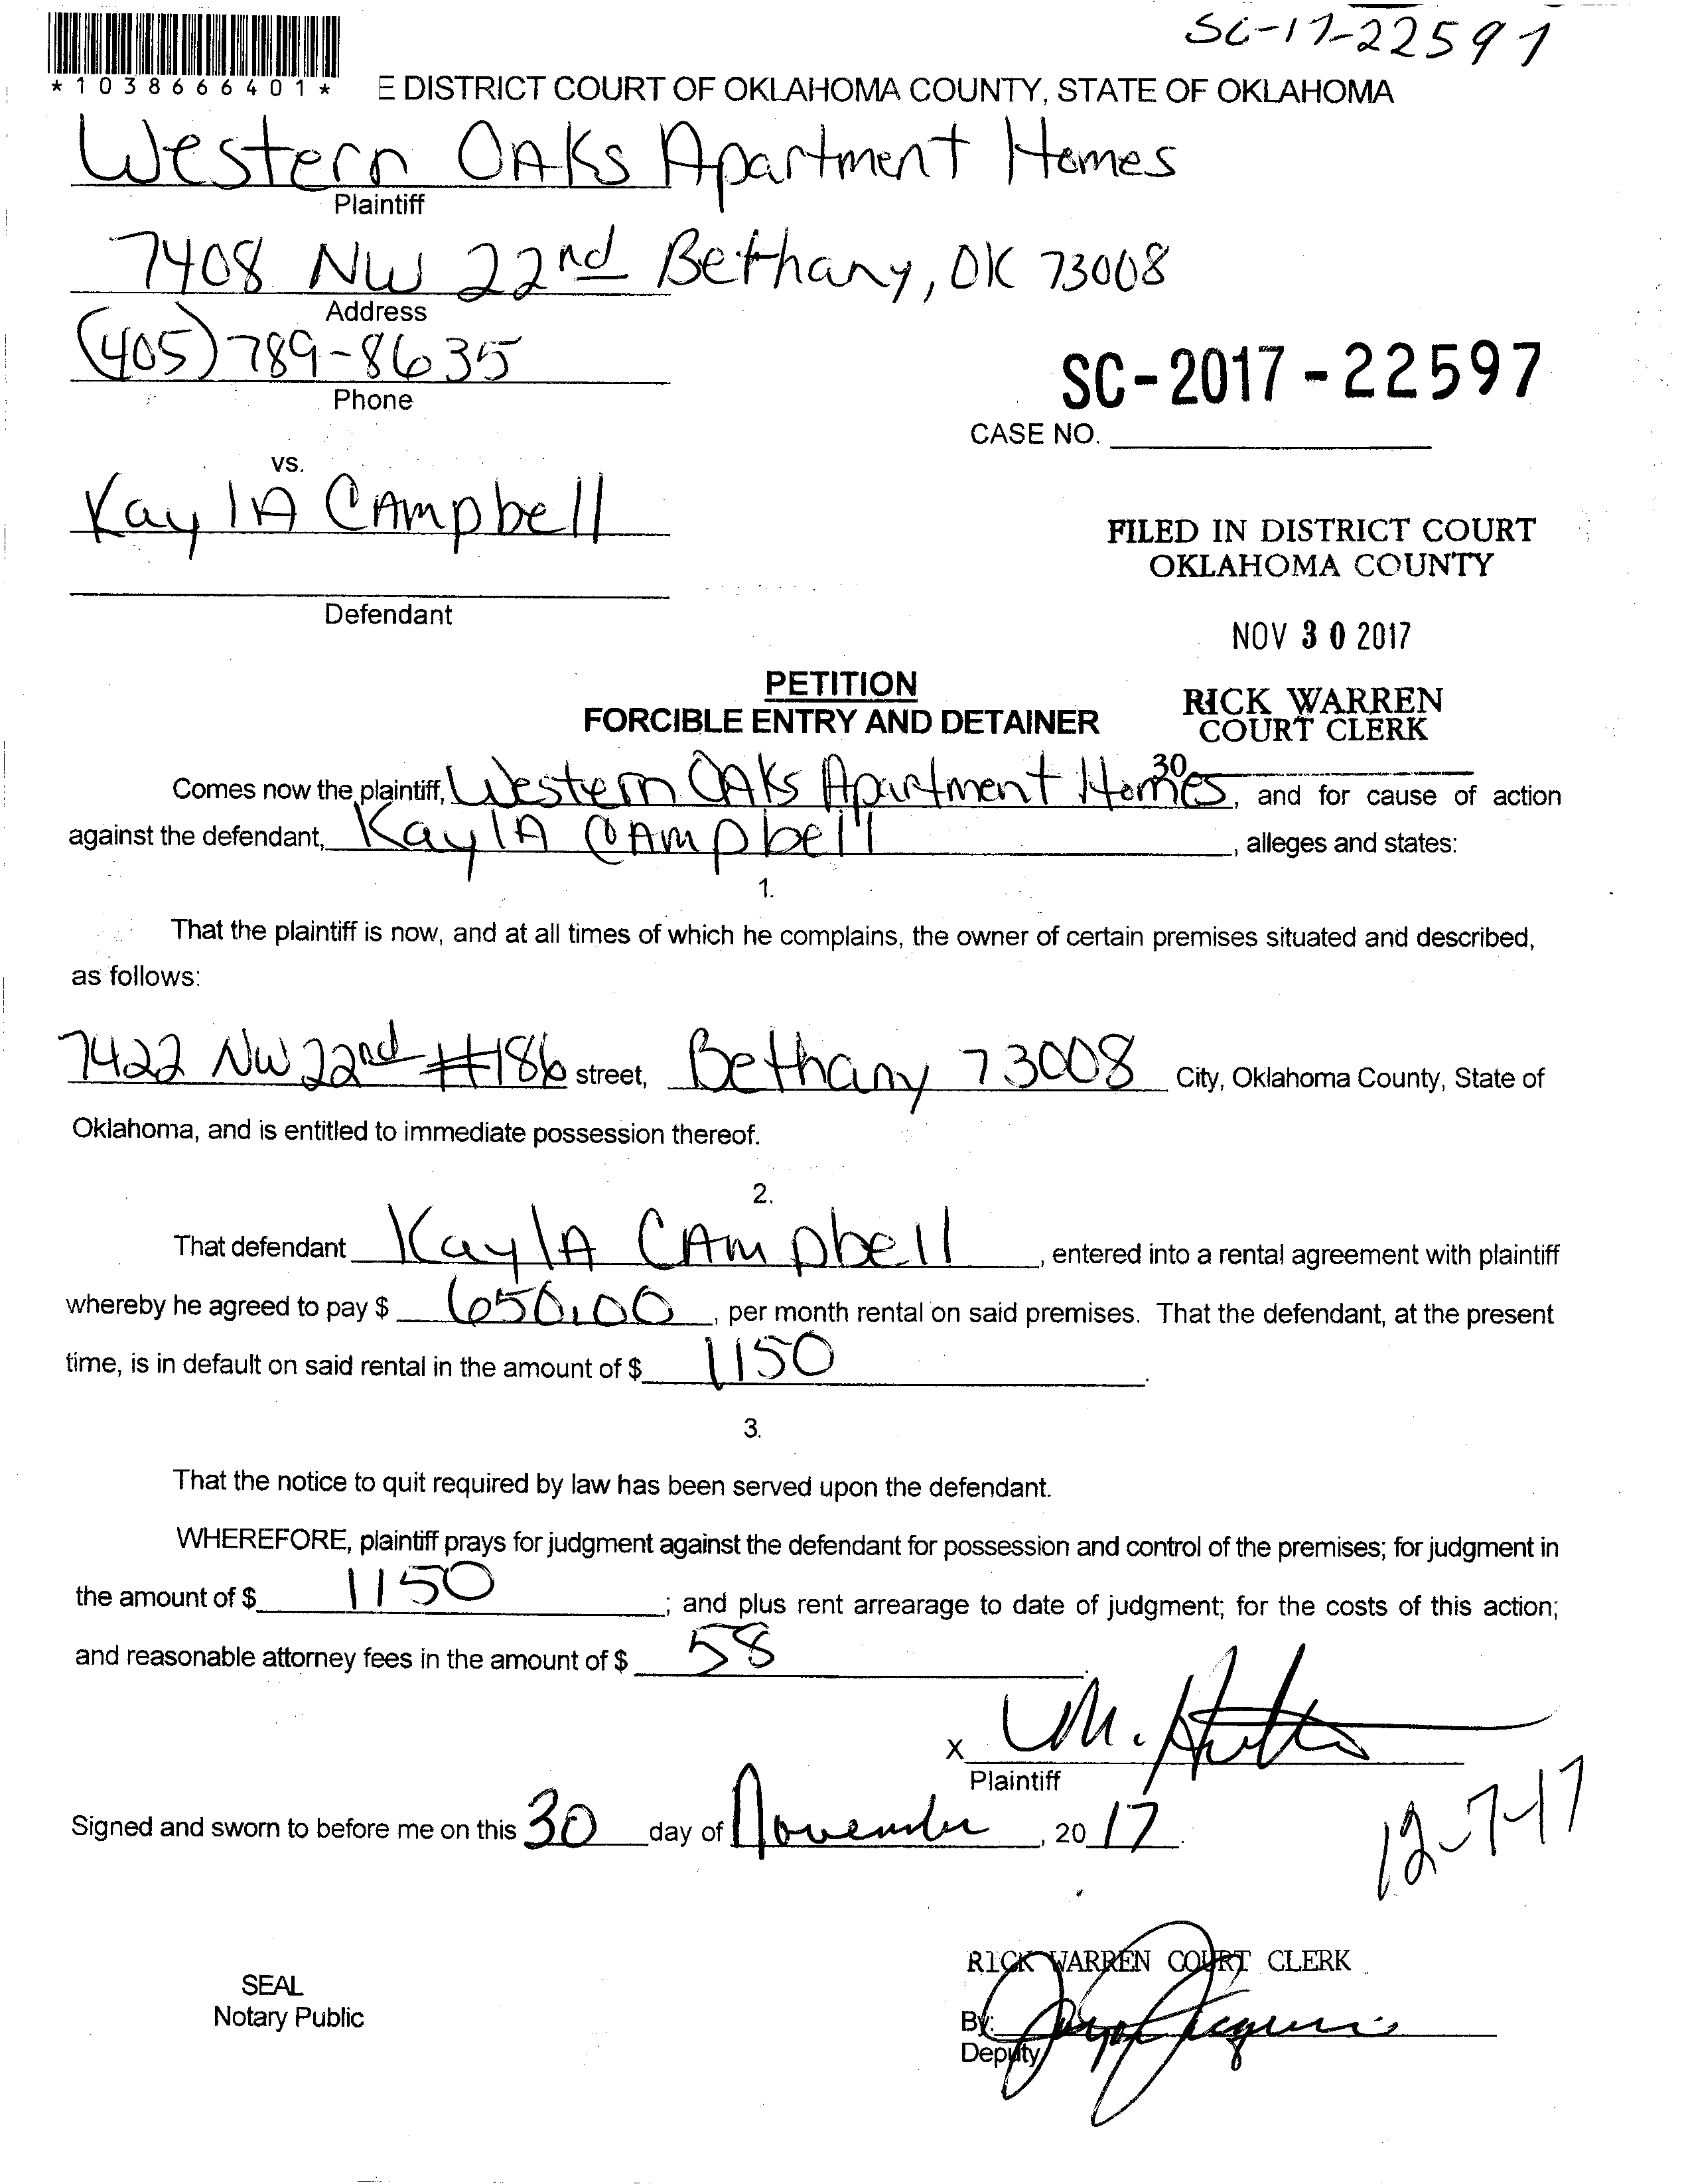 SC-17-22597
*10386666401*
E DISTRICT COURT OF OKLAHOMA COUNTY, STATE OF OKLAHOMA
Western OAKs Apartment Homes
Plaintiff
7408 NW 22nd Bethany, OK 73008
Address
(405) 789-8635
Phone
SC-2017-22597
CASE NO.
vs.
KaylA CAmpbell
FILED IN DISTRICT COURT
OKLAHOMA COUNTY
Defendant
NOV 30 2017
PETITION
FORCIBLE ENTRY AND DETAINER
RICK WARREN
COURT CLERK
30
Comes now the plaintiff, Western OAKs Apartment Homes, and for cause of action
against the defendant, KaylA CAmpbell, alleges and states:
1.
That the plaintiff is now, and at all times of which he complains, the owner of certain premises situated and described,
as follows:
7422 NW 22nd #186 street, Bethany 73008 City, Oklahoma County, State of
Oklahoma, and is entitled to immediate possession thereof.
2.
That defendant KaylA CAmpbell, entered into a rental agreement with plaintiff
whereby he agreed to pay $ 650.00, per month rental on said premises. That the defendant, at the present
time, is in default on said rental in the amount of $ 1150.
3.
That the notice to quit required by law has been served upon the defendant.
WHEREFORE, plaintiff prays for judgment against the defendant for possession and control of the premises; for judgment in
the amount of $ 1150; and plus rent arrearage to date of judgment; for the costs of this action;
and reasonable attorney fees in the amount of $ 58.
X M.
Plaintiff
Signed and sworn to before me on this 30 day of November, 2017.
12-7-17
RICK WARREN COURT CLERK
SEAL
Notary Public
By:
Deputy